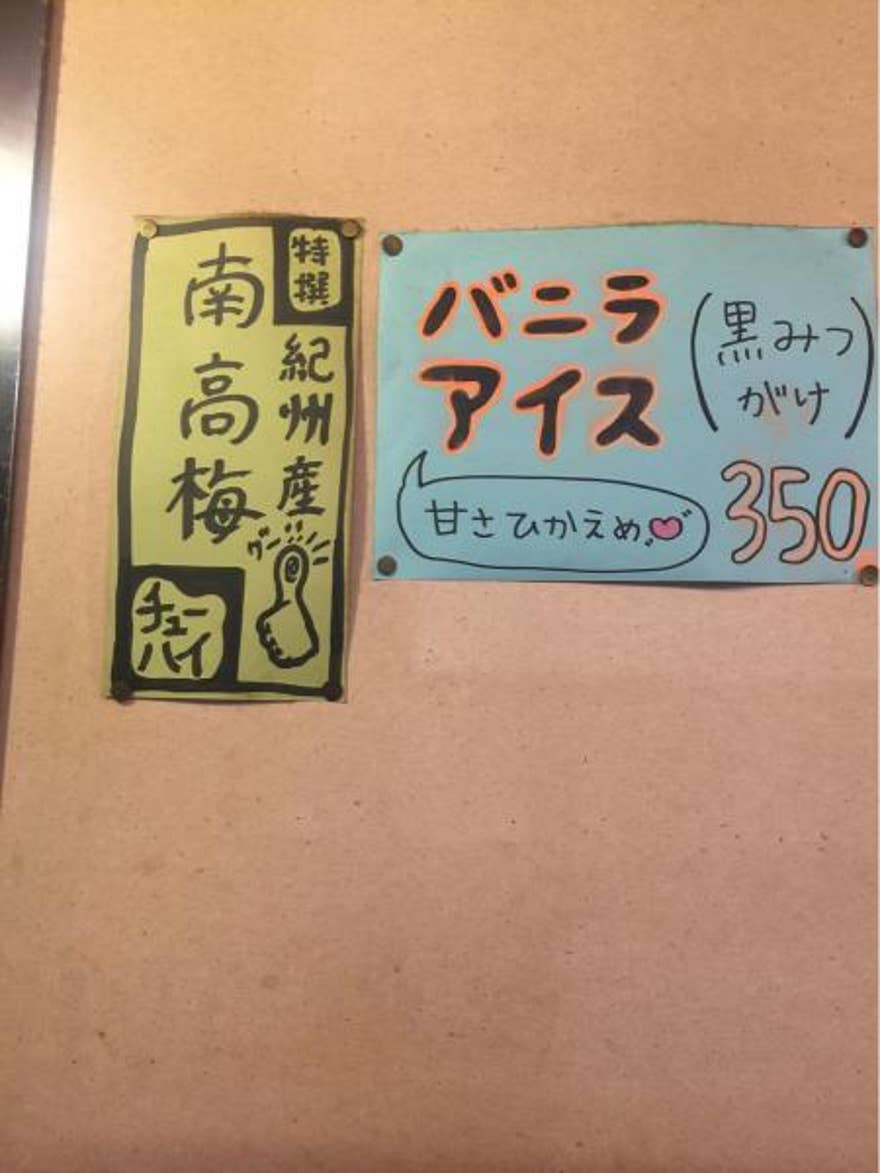 特撰
紀州産
南高梅
グー!!
チュー
ハイ
バニラ
アイス
(黒みつ
がけ)
甘さひかえめ♡
350